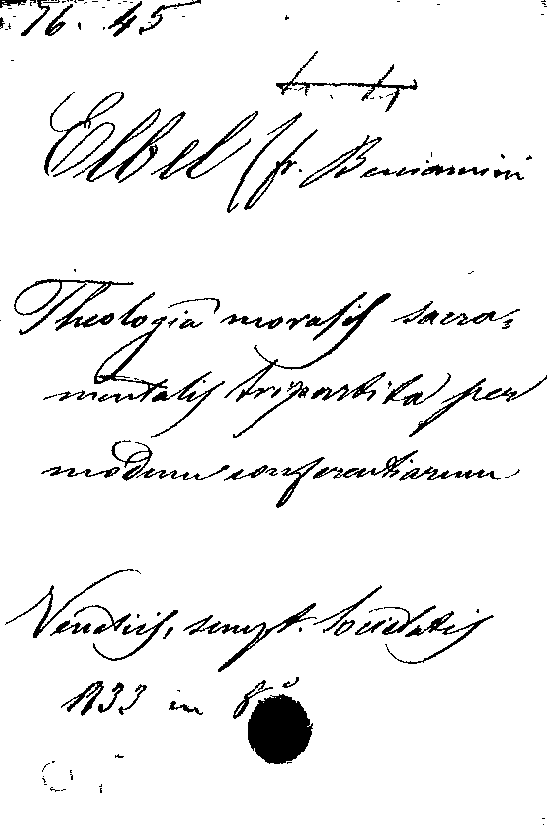 76. 45
Elbel (fr. Beniamini
Theologia moralis sacra-
mentalis tripartita per
modum conferentiarum
Venetiis, sumpt. Societatis
1733 in 8°